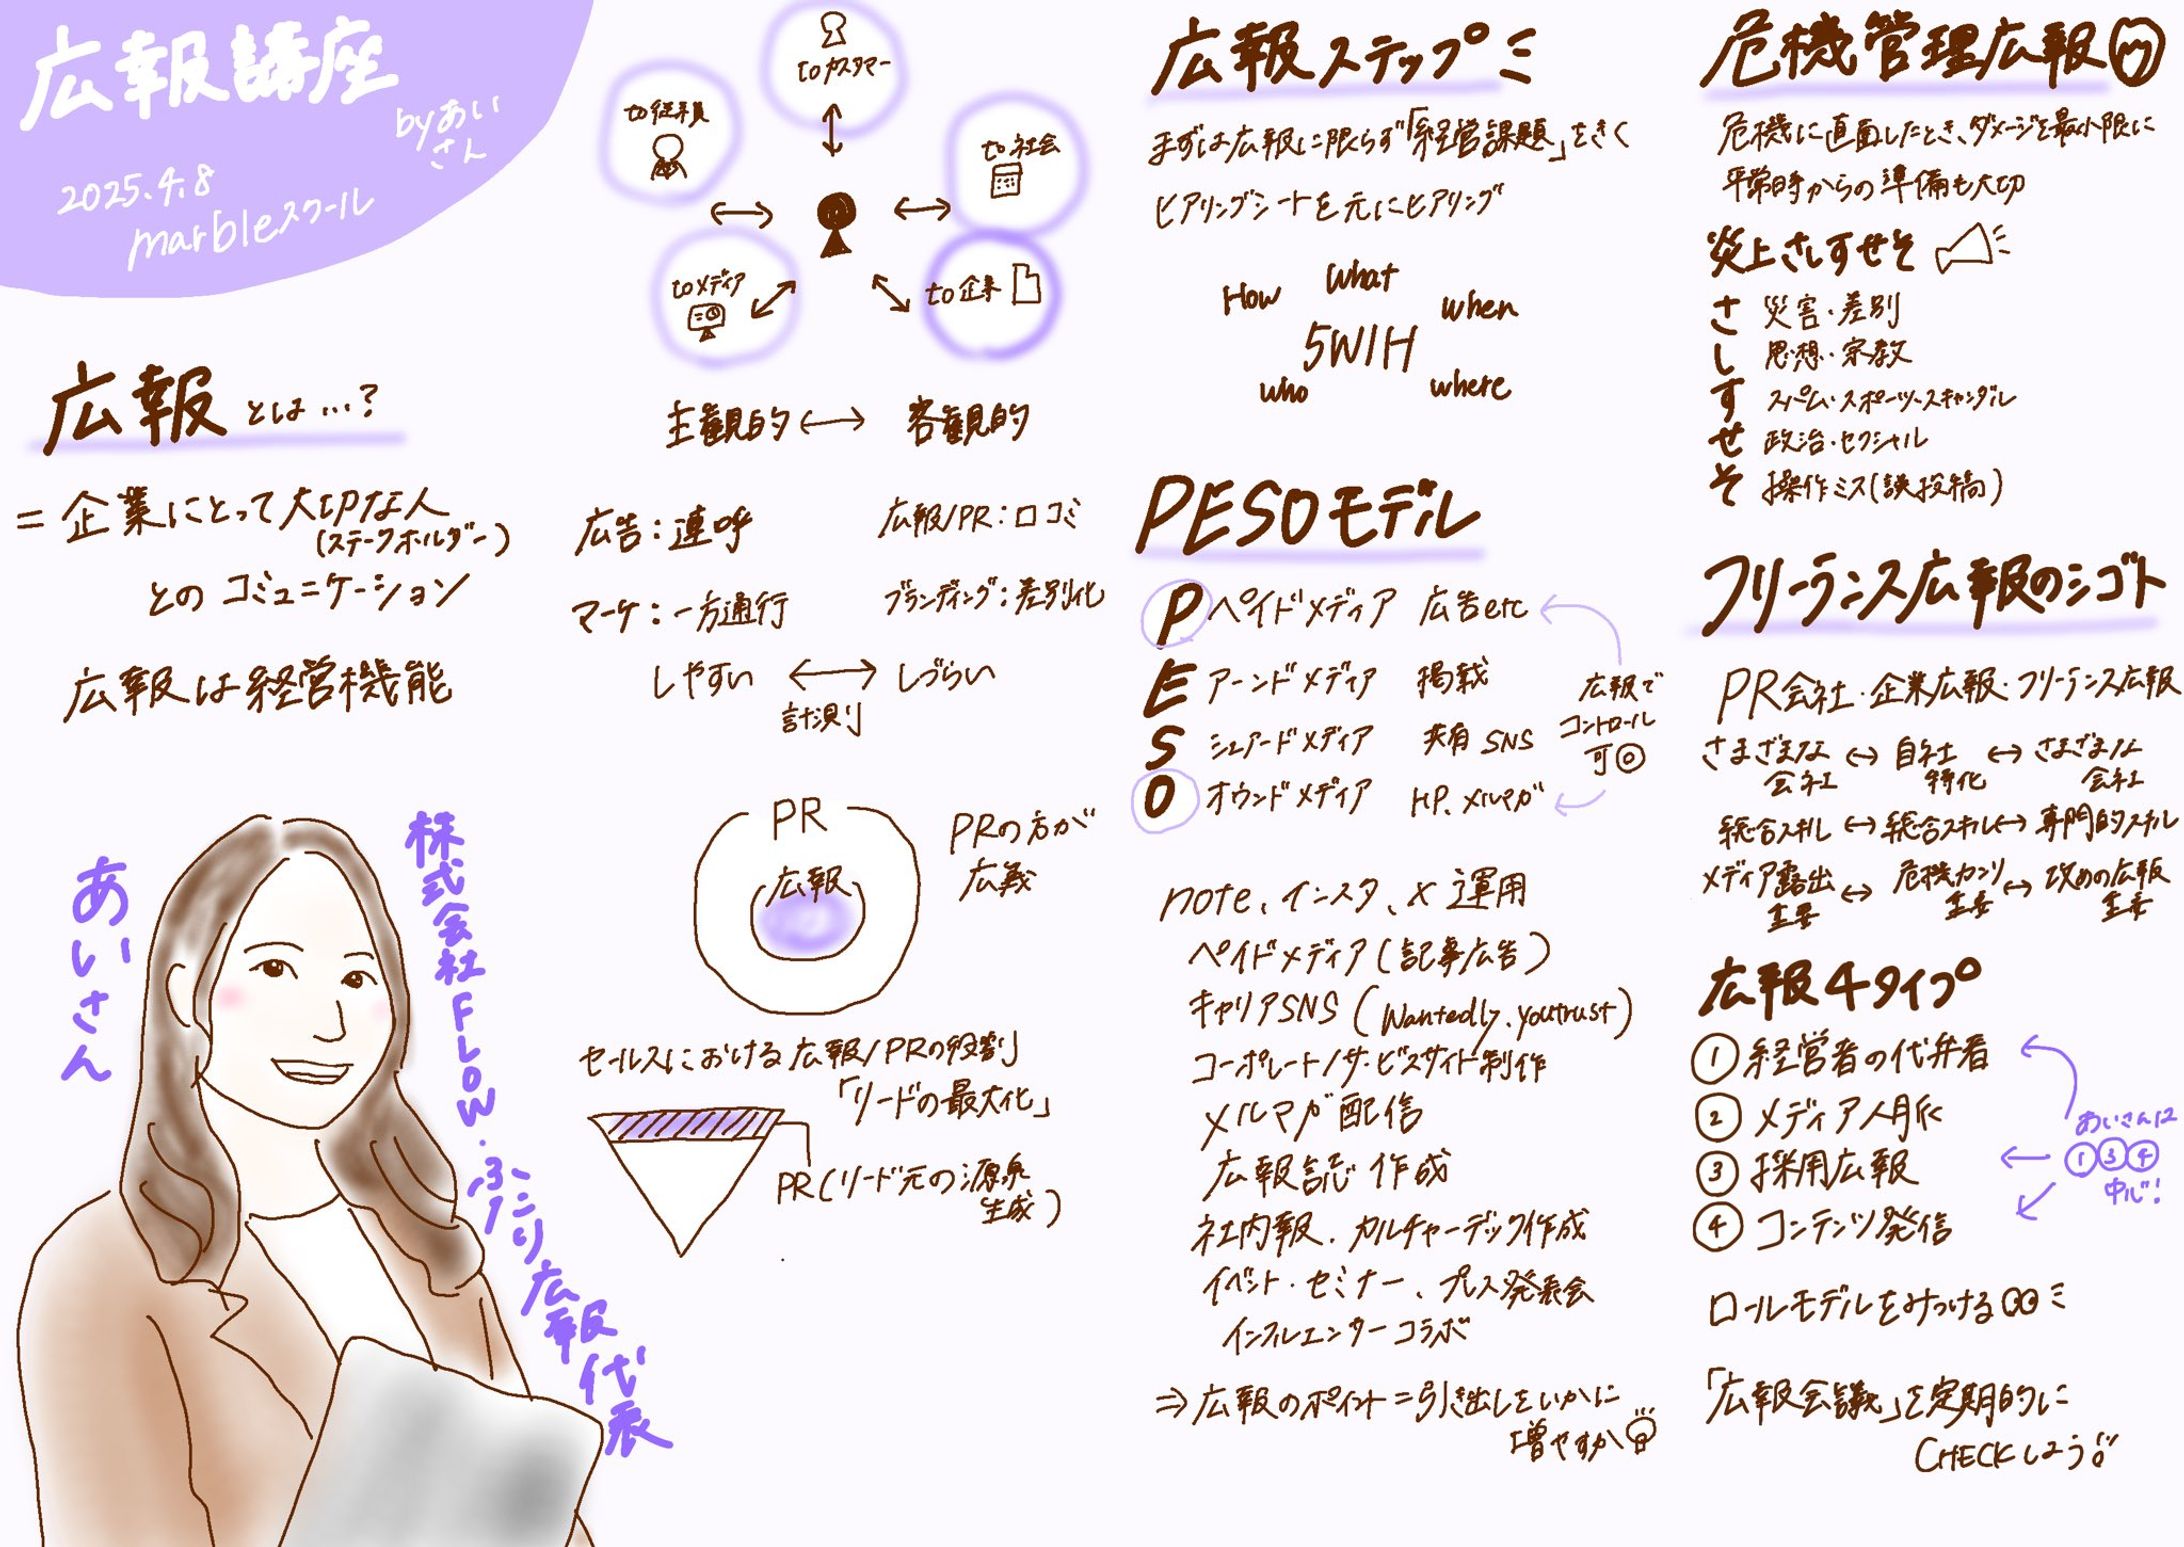 広報講座
byあい
さん
2025.4.8
marbleスクール
広報とは…?
=企業にとって大切な人
(ステークホルダー)
とのコミュニケーション
広報は経営機能
あいさん
株式会社FLOW.ふたり広報代表
toカスタマー
to従業員
to社会
toメディア
to企業
主観的↔客観的
広告:連呼
広報/PR:口コミ
マーケ:一方通行
ブランディング:差別化
しやすい↔しづらい
計測
PR
広報
PRの方が
広義
セールスにおける広報/PRの役割
「リードの最大化」
PR(リード元の源泉
生成)
広報ステップ
まずは広報に限らず「経営課題」をきく
ヒアリングシートを元にヒアリング
How
What
when
5W1H
who
where
PESOモデル
P ペイドメディア 広告etc
E アーンドメディア 掲載
S シェアードメディア 共有 SNS
O オウンドメディア HP、メルマガ
広報で
コントロール
可◎
note、インスタ、X 運用
ペイドメディア(記事広告)
キャリアSNS(Wantedly.youtrust)
コーポレート/サービスサイト制作
メルマガ配信
広報誌作成
社内報、カルチャーデック作成
イベント・セミナー、プレス発表会
インフルエンサーコラボ
⇒広報のポイント=引き出しをいかに
増やすか
危機管理広報
危機に直面したとき、ダメージを最小限に
平常時からの準備も大切
炎上さしすせそ
さ 災害・差別
し 思想・宗教
す スパム・スポーツ・スキャンダル
せ 政治・セクシャル
そ 操作ミス(誤投稿)
フリーランス広報のシゴト
PR会社・企業広報・フリーランス広報
さまざまな
会社
↔
自社
特化
↔
さまざまな
会社
総合スキル↔総合スキル↔専門的スキル
メディア露出
主要
↔
危機カンリ
主要
↔
攻めの広報
主要
広報4タイプ
①経営者の代弁者
②メディア人脈
③採用広報
④コンテンツ発信
あいさんは
①③④
中心!
ロールモデルをみつける
「広報会議」を定期的に
CHECKしよう!!